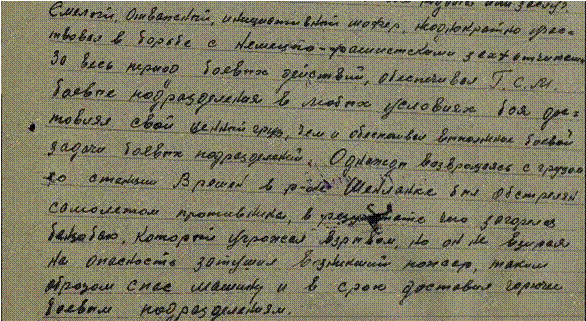 Смелый, Отважный, инициативный шофер, неоднократно участ-
вовал в борьбе с немецко-фашистскими захватчиками
За весь период боевых действий, обеспечивал Г.С.М.
боевые подразделения в любых условиях боя дос-
товлял свой ценный груз, чем и обеспечивал выполнение боевой
задачи боевых подразделений. Однажды возвращаясь с грузом
со станции Врешен в р-не Шенланке был обстрелян
самолетом противника, в результате чего загорелся
бак, который угрожал взрывом, но он не взирая
на опасность затушил возникший пожар, таким
образом спас машину и в срок доставил горючее
боевым подразделениям.